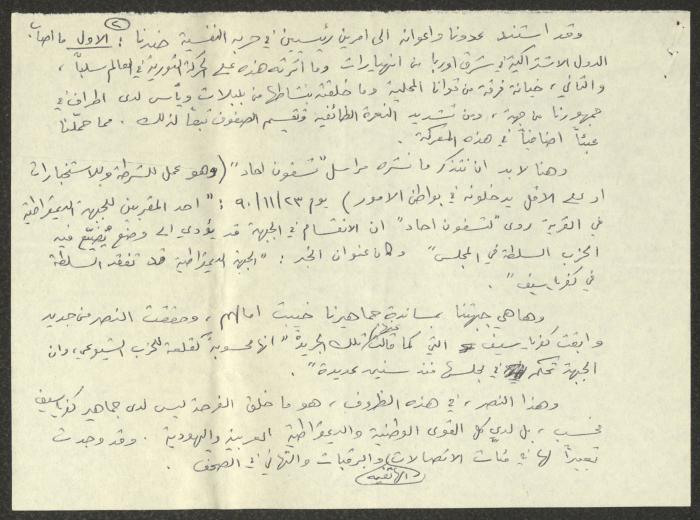 ٢
وقد استند عدونا واعوانه الى امرين رئيسيين في حربه النفسية ضدنا : الاول ما اصاب
الدول الاشتراكية في شرق اوربا من انهيارات وما اثرته هذه على الحركة الثورية في العالم سلباً ،
والثاني ، خيانة فرقة من قوانا المحلية وما خلقته بنشاطها من بلبلات ويأس لدى اطراف في
جمهورنا من جهة ، ومن تشديد النعرة الطائفية وتقسيم الصفوف تبعاً لذلك . مما حملنا
عبئاً اضافياً في هذه المعركة .
وهنا لا بد ان نتذكر ما نشره مراسل "تسفون احاد" (وهو عمل للشرطة وللاستخبارات
او على الاقل يدخلونه في بواطن الامور) يوم ٩٠/١١/٢٣ : "احد المقربين للجبهة الديمقراطية
في القرية روى "لتسفون احاد" ان الانقسام في الجبهة قد يؤدي الى وضع يُضيّع فيه
الحزب السلطة في المجلس" وكان عنوان الخبر : "الجبهة الديمقراطية قد تفقد السلطة
في كفرياسيف" .
وها هي جبهتنا بمساندة جماهيرنا خيبت امالهم ، وحققت النصر من جديد
وابقت كفرياسيف التي كما قالت عنها تلك الجريدة "انها محسوبة كقلعة للحزب الشيوعي ، وان
الجبهة تحكم في مجلسها منذ سنين عديدة" .
وهذا النصر ، في هذه الظروف ، هو ما خلق الفرحة ليس لدى جماهير كفرياسيف
فحسب ، بل لدى كل القوى الوطنية والديمقراطية العربية واليهودية . وقد وجدت
تعبيراً لها في مئات الاتصالات الهاتفية والبرقيات والتهاني في الصحف .